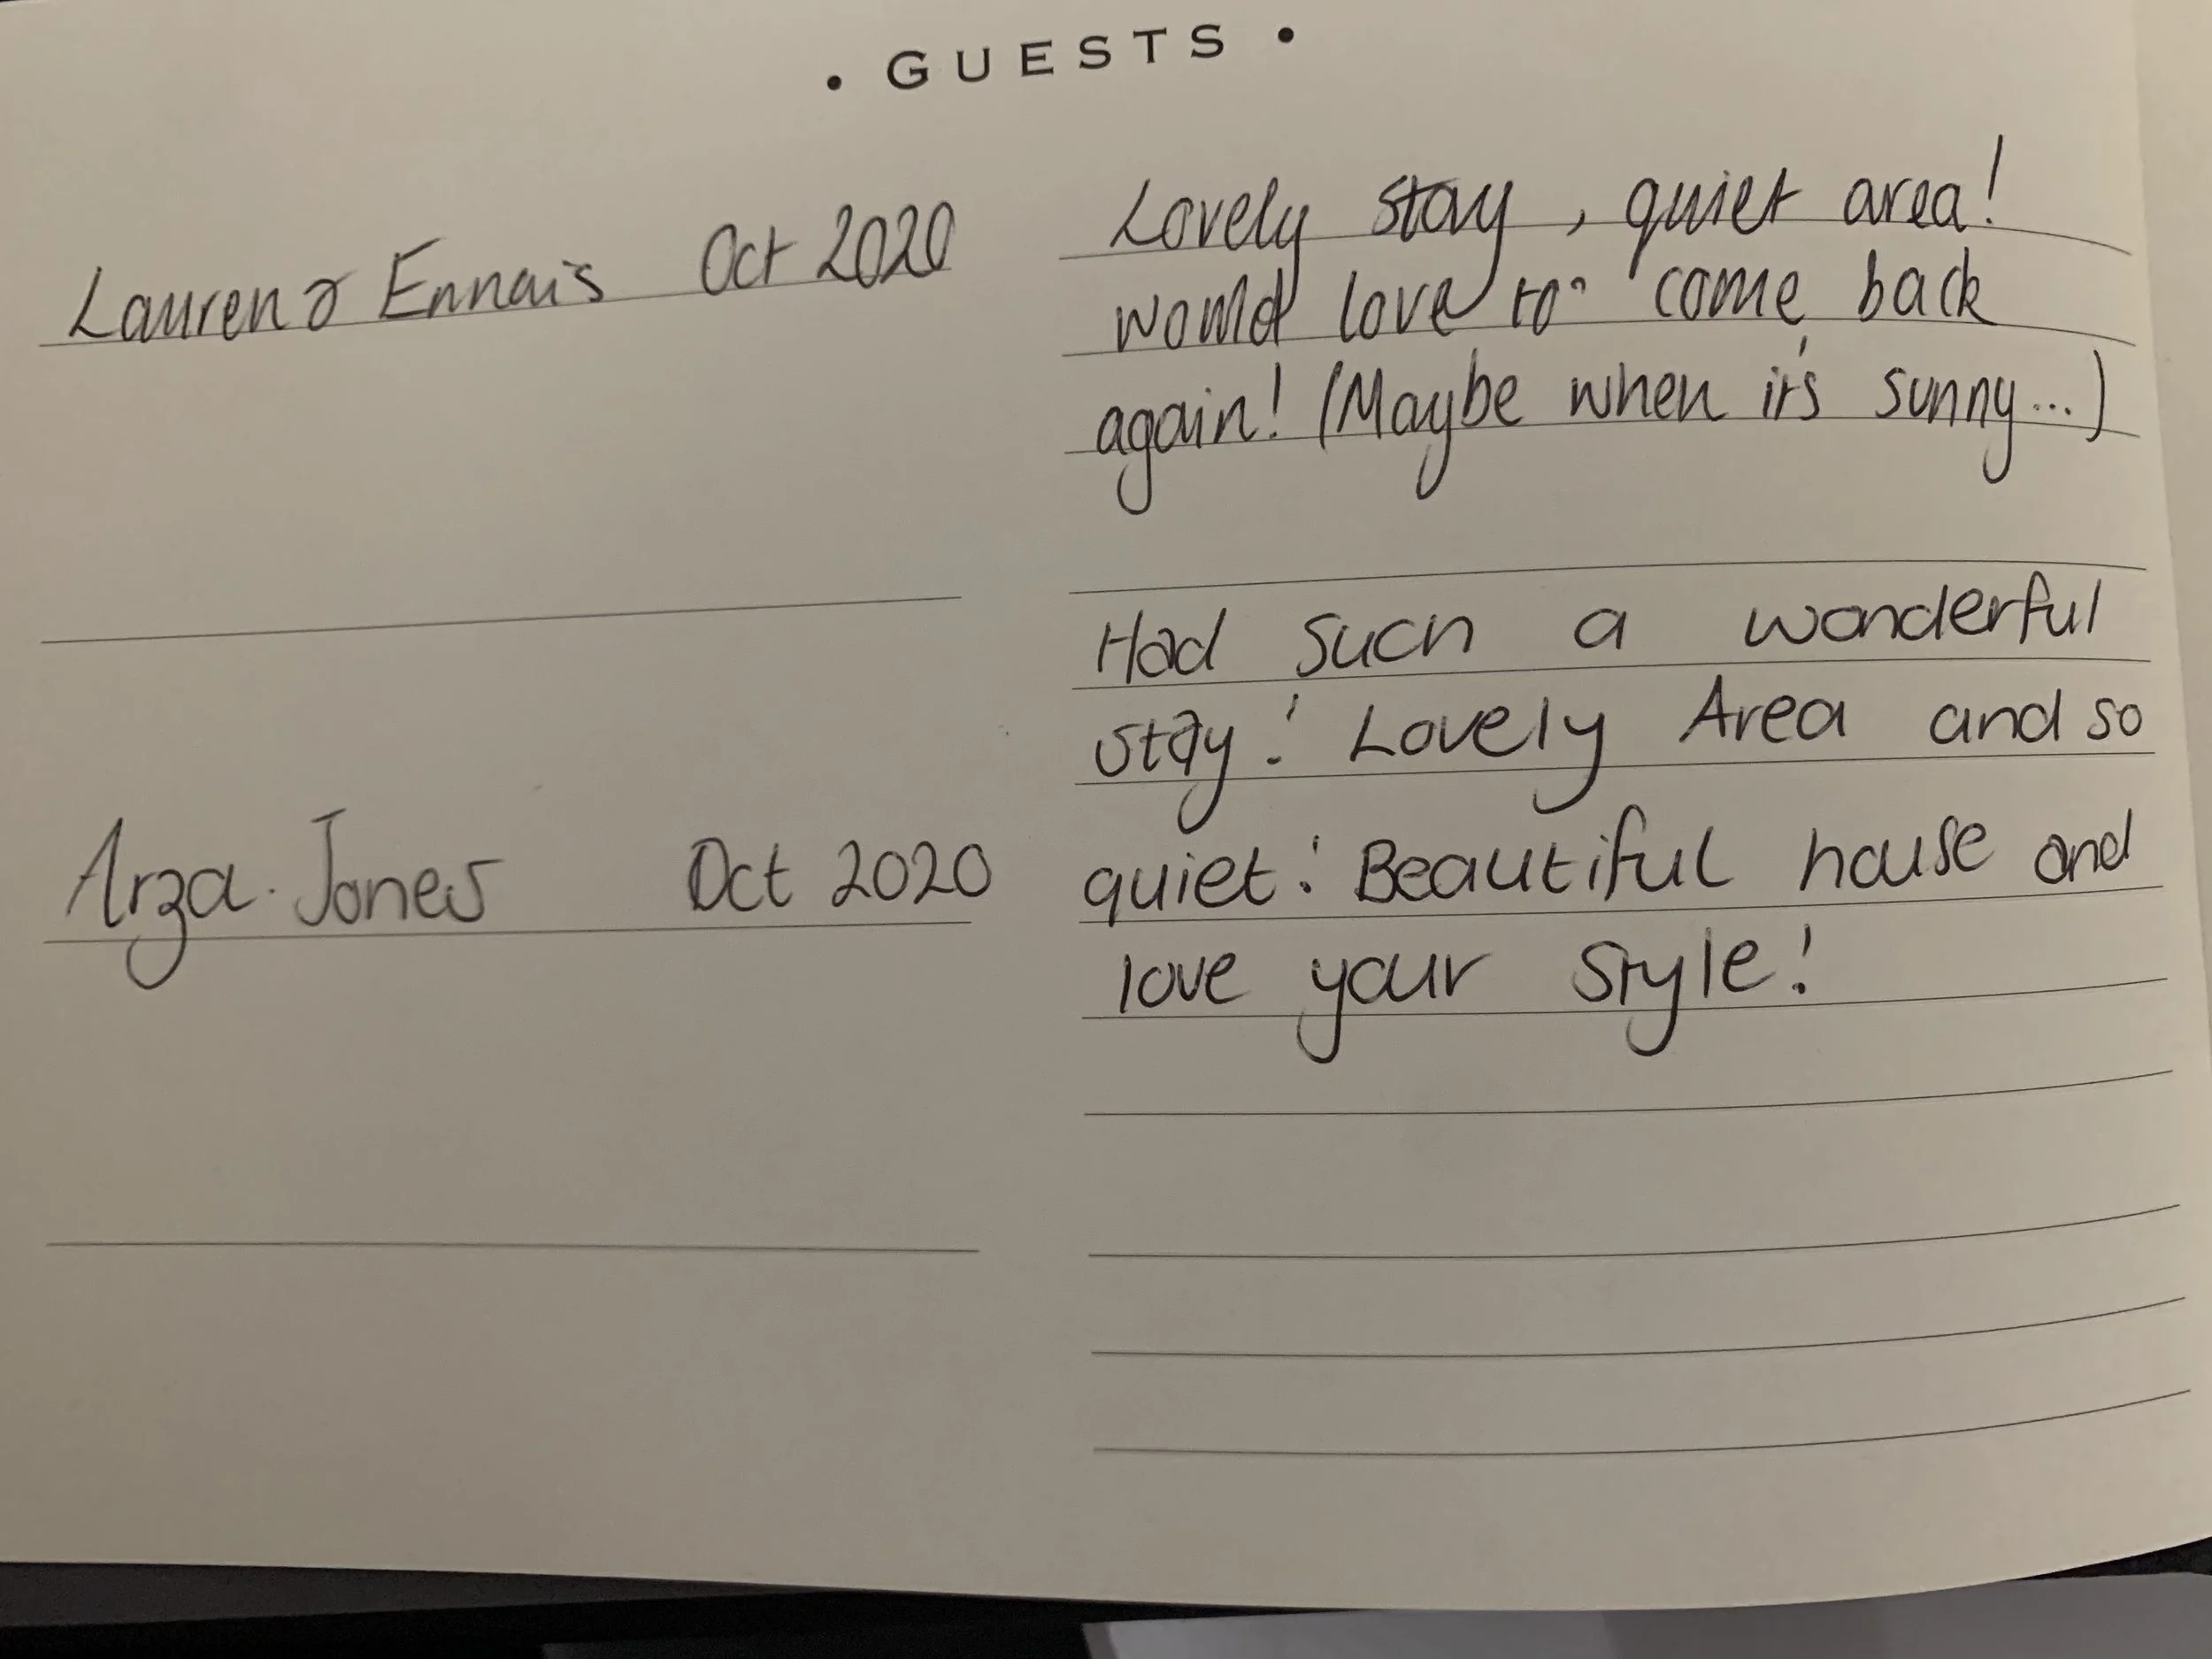 • GUESTS •
Lauren & Ennais Oct 2020
Lovely stay, quiet area!
would love to come back
again! (Maybe when it's sunny...)
Had such a wonderful
stay! Lovely Area and so
Arza. Jones Oct 2020
quiet! Beautiful house and
love your style!